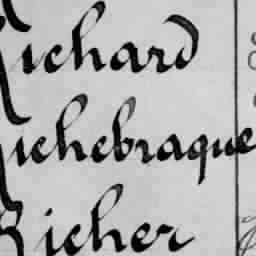 Richard
Richebraque
Richer